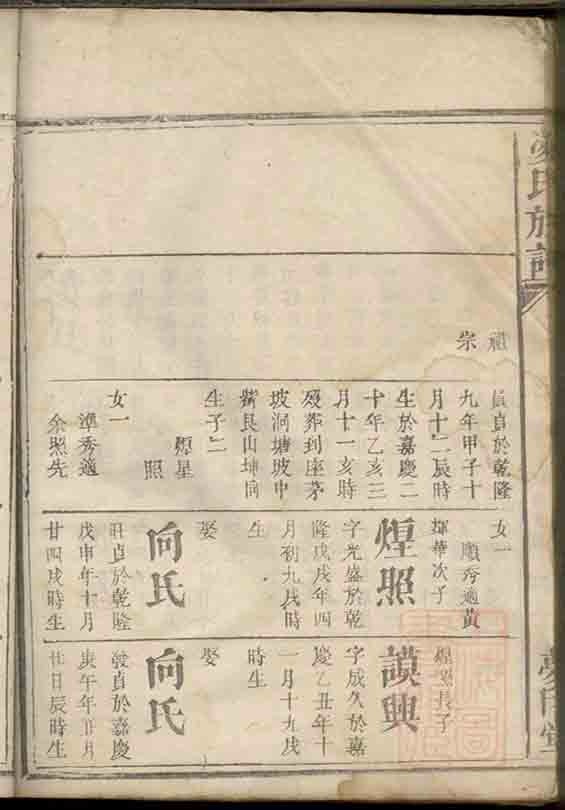 氏族譜
祖
宗
貞於乾隆
九年甲子十
月十二辰時
生於嘉慶二
十年乙亥三
月十一亥時
歿葬到座茅
坡洞塘坡中
嘴艮山坤向
生子二
星
照
女一
準秀適
余照先
女一
順秀適黃
華次子
煌照
字光盛於乾
隆戊戌年四
月初九戌時
生
娶
向氏
旺貞於乾隆
戊申年十月
廿四戌時生
煌照長子
謨興
字成久於嘉
慶乙丑年十
一月十九戌
時生
娶
向氏
發貞於嘉慶
庚午年月
廿日辰時生